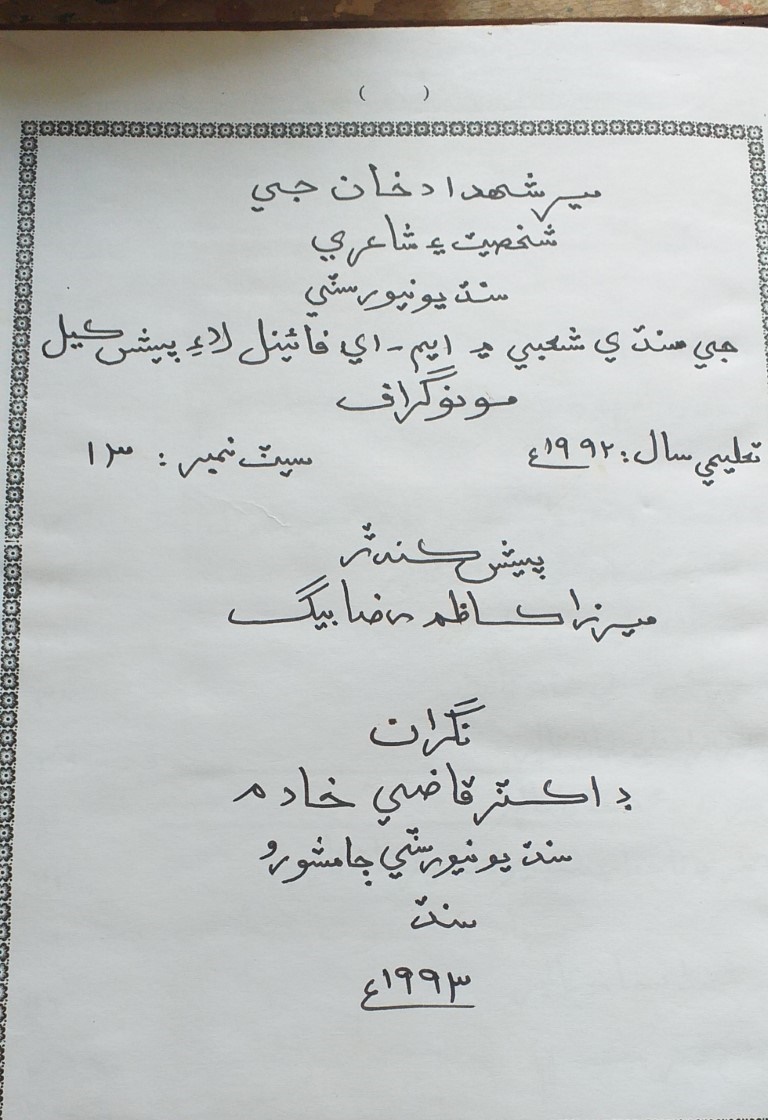 ( )
مير شهداد خان جي
شخصيت ۽ شاعري
سنڌ يونيورسٽي
جي سنڌي شعبي ۾ ايم - اي فائينل لاءِ پيش ڪيل
مونوگراف
تعليمي سال: ۱۹۹۲ع سيٽ نمبر: ۱۳
پيش ڪندڙ
ميرزا ڪاظم رضا بيگ
نگران
ڊاڪٽر قاضي خادم
سنڌ يونيورسٽي ڄامشورو
سنڌ
۱۹۹۳ع